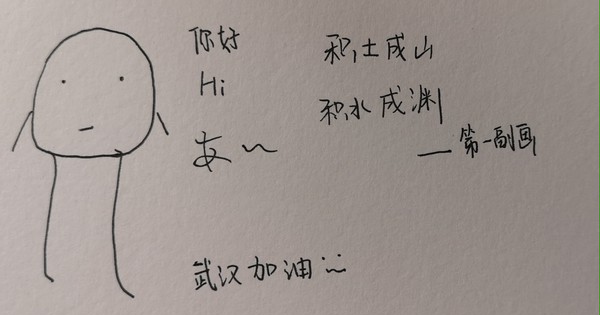 你好
Hi
あ~
积土成山
积水成渊
——第一副画
武汉加油